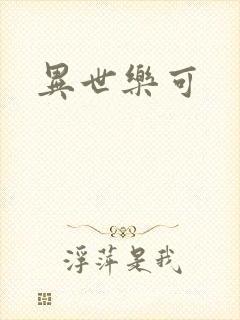 異世樂可
浮萍是我